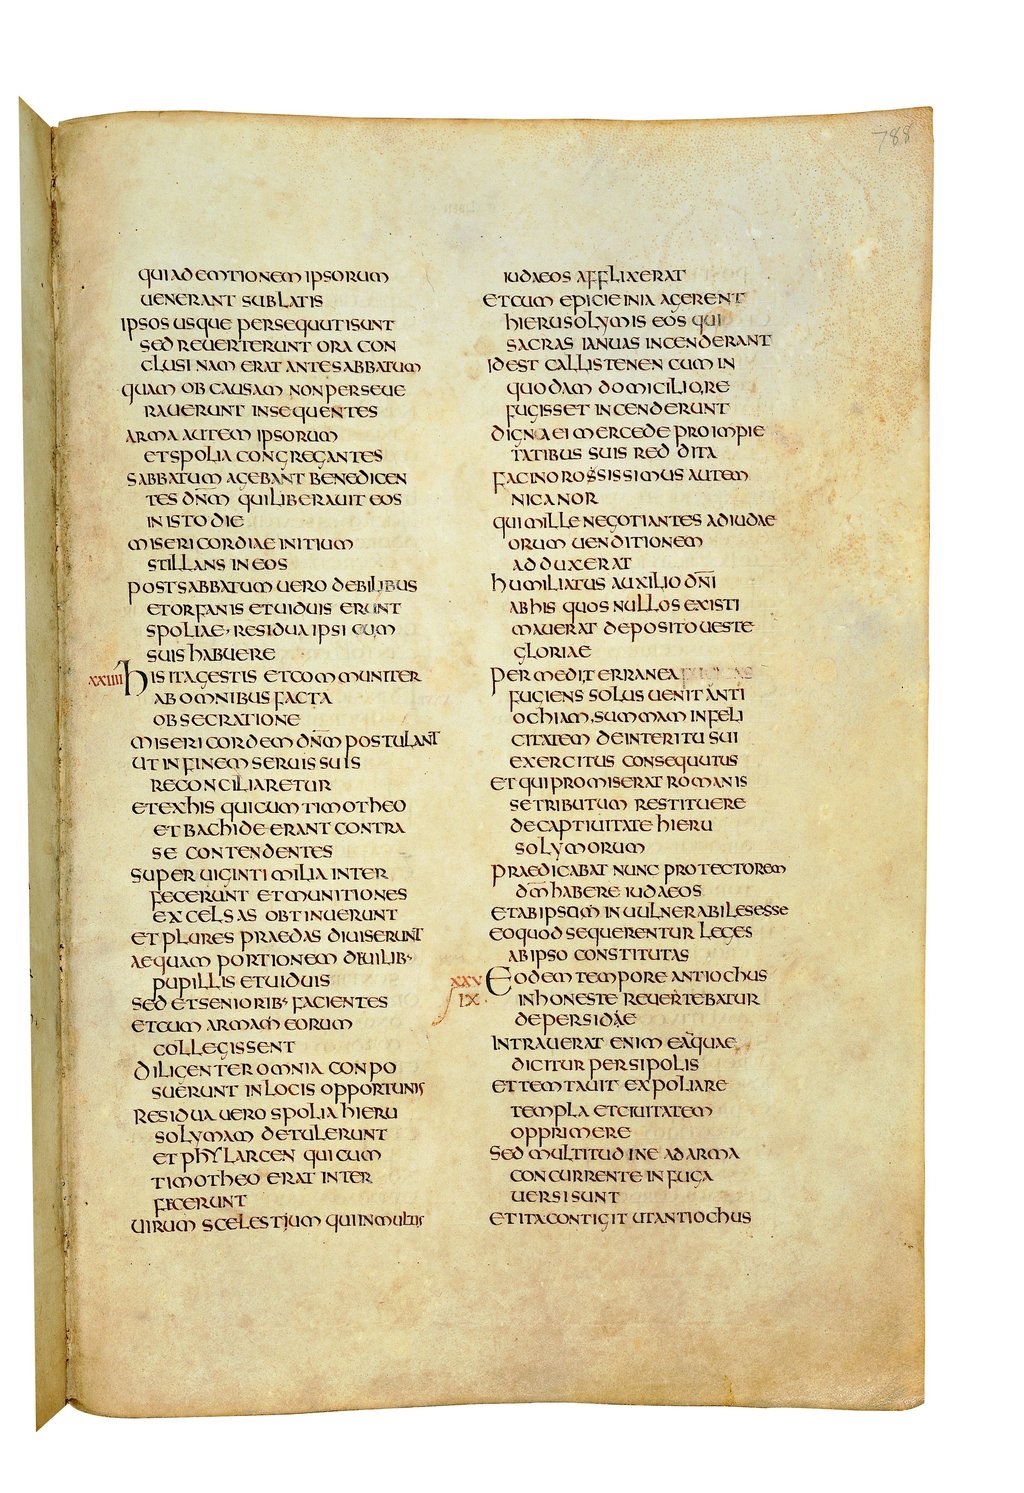 788
QUI AD EMTIONEM IPSORUM
UENERANT SUBLATIS
IPSOS USQUE PERSEQUUTI SUNT
SED REUERTERUNT ORA CON
CLUSI NAM ERAT ANTE SABBATUM
QUAM OB CAUSAM NON PERSEUE
RAUERUNT INSEQUENTES
ARMA AUTEM IPSORUM
ET SPOLIA CONGREGANTES
SABBATUM AGEBANT BENEDICEN
TES DN̅M QUI LIBERAUIT EOS
IN ISTO DIE
MISERICORDIAE INITIUM
STILLANS IN EOS
POST SABBATUM UERO DEBILIBUS
ET ORFANIS ET UIDUIS ERUNT
SPOLIAE, RESIDUA IPSI CUM
SUIS HABUERE
XXIIII HIS ITA GESTIS ET COMMUNITER
AB OMNIBUS FACTA
OBSECRATIONE
MISERICORDEM DN̅M POSTULANT
UT IN FINEM SERUIS SUIS
RECONCILIARETUR
ET EX HIS QUI CUM TIMOTHEO
ET BACHIDE ERANT CONTRA
SE CONTENDENTES
SUPER UIGINTI MILIA INTER
FECERUNT ET MUNITIONES
EXCELSAS OBTINUERUNT
ET PLURES PRAEDAS DIUISERUNT
AEQUAM PORTIONEM DEUILIB·
PUPILLIS ET UIDUIS
SED ET SENIORIB· FACIENTES
ET CUM ARMA EORUM
COLLEGISSENT
DILIGENTER OMNIA CONPO
SUERUNT IN LOCIS OPPORTUNIS
RESIDUA UERO SPOLIA HIERU
SOLYMAM DETULERUNT
ET PHYLARCEN QUI CUM
TIMOTHEO ERAT INTER
FECERUNT
UIRUM SCELESTUM QUI IN MULTIS
IUDAEOS AFFLIXERAT
ET CUM EPICIEINIA AGERENT
HIERUSOLYMIS EOS QUI
SACRAS IANUAS INCENDERANT
ID EST CALLISTENEN CUM IN
QUODAM DOMICILIO, RE
FUGISSET INCENDERUNT
DIGNA EI MERCEDE PRO IMPIE
TATIBUS SUIS REDDITA
FACINOROSSISSIMUS AUTEM
NICANOR
QUI MILLE NEGOTIANTES AD IUDAE
ORUM UENDITIONEM
ADDUXERAT
HUMILIATUS AUXILIO DN̅I
AB HIS QUOS NULLOS EXISTI
MAUERAT DEPOSITO UESTE
GLORIAE
PER MEDITERRANEA
FUGIENS SOLUS UENIT ANTI
OCHIAM, SUMMAM INFELI
CITATEM DE INTERITU SUI
EXERCITUS CONSEQUUTUS
ET QUI PROMISERAT ROMANIS
SE TRIBUTUM RESTITUERE
DE CAPTIUITATE HIERU
SOLYMORUM
PRAEDICABAT NUNC PROTECTOREM
DM̅ HABERE IUDAEOS
ET AB IPSUM INUULNERABILES ESSE
EO QUOD SEQUERENTUR LEGES
AB IPSO CONSTITUTAS
XXV EODEM TEMPORE ANTIOCHUS
IX· INHONESTE REUERTEBATUR
DE PERSIDAE
INTRAUERAT ENIM EA QUAE
DICITUR PERSIPOLIS
ET TEMTAUIT EXPOLIARE
TEMPLA ET CIUITATEM
OPPRIMERE
SED MULTITUDINE AD ARMA
CONCURRENTE IN FUGA
UERSI SUNT
ET ITA CONTIGIT UT ANTIOCHUS